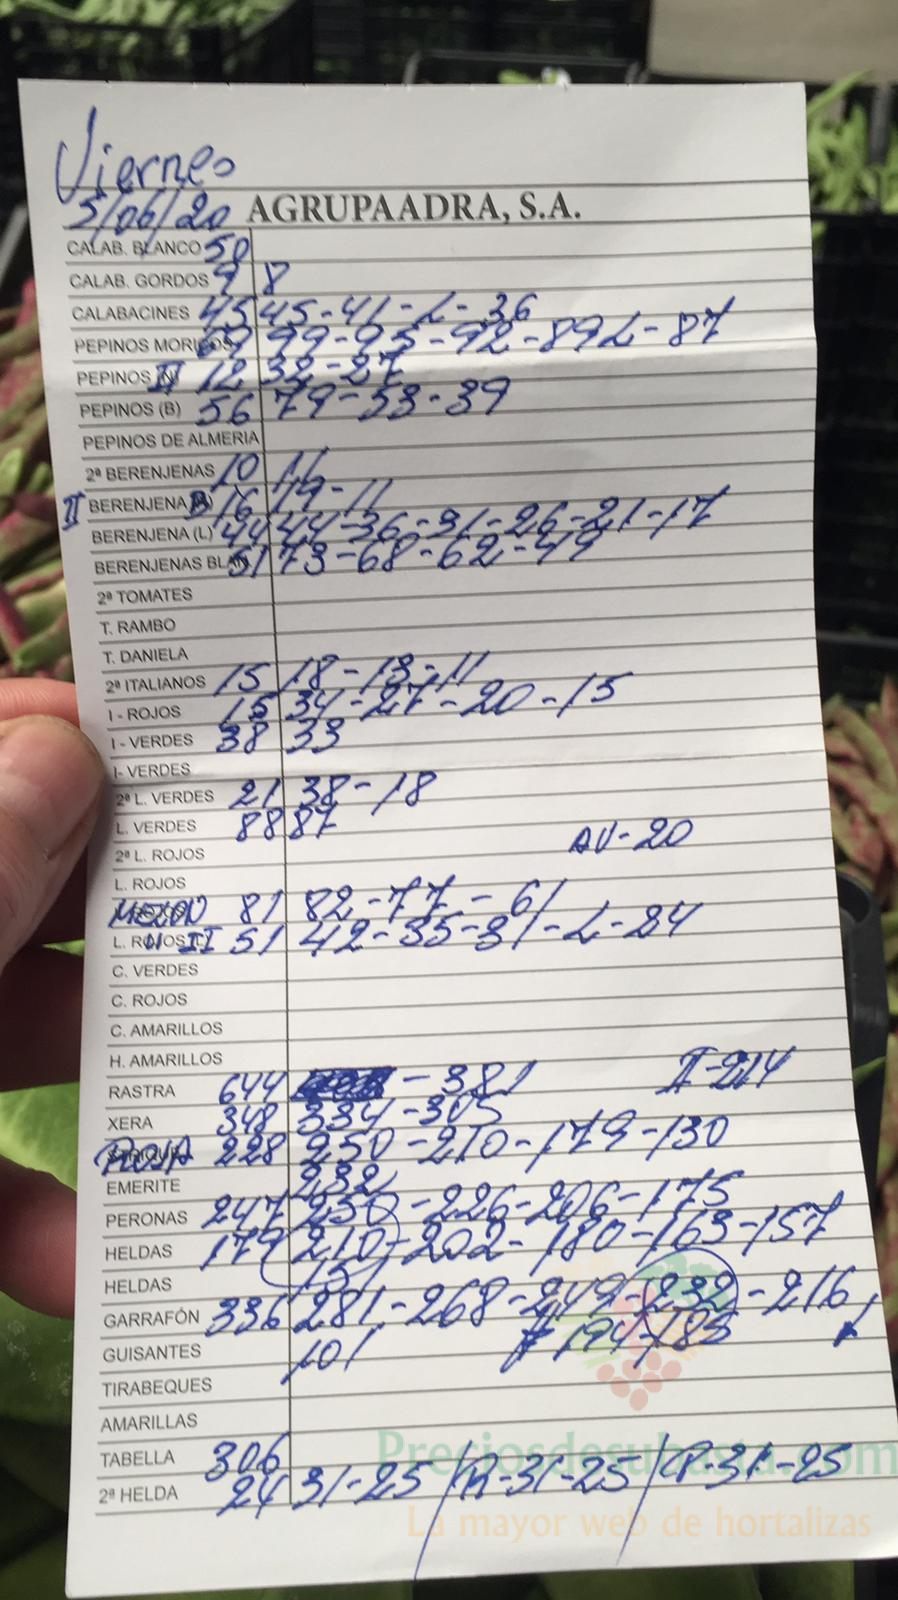 Viernes
5/06/20 AGRUPAADRA, S.A.
CALAB. BLANCO 50
CALAB. GORDOS 9 8
CALABACINES 45 45-41-L-36
PEPINOS 99-95-92-89L-87
PEPINOS II 12 32-27
PEPINOS (B) 56 79-53-39
PEPINOS DE ALMERIA
2ª BERENJENAS 10 11
II BERENJENA B 16 19-11
BERENJENA (L) 44 44-36-31-26-21-17
BERENJENAS 51 73-68-62-49
2ª TOMATES
T. RAMBO
T. DANIELA
2ª ITALIANOS 15 18-13-11
I - ROJOS 15 34-27-20-15
I - VERDES 38 33
I- VERDES
2ª L. VERDES 21 38-18
L. VERDES 88 87
AV-20
2ª L. ROJOS
L. ROJOS
81 82-77-61
L. ROJOS II 51 42-35-31-L-24
C. VERDES
C. ROJOS
C. AMARILLOS
H. AMARILLOS
RASTRA 644 -381 II-214
XERA 348 334-305
ROJA 228 250-210-179-130
EMERITE 232
PERONAS 247 250-226-206-175
HELDAS 179 210-202-180-163-157
HELDAS 151
GARRAFÓN 336 281-268-249-232-216
194-183
GUISANTES 101
TIRABEQUES
AMARILLAS
TABELLA 306
2ª HELDA 24 31-25 /R-31-25/P-31-25
Preciosdesubasta.com
La mayor web de hortalizas